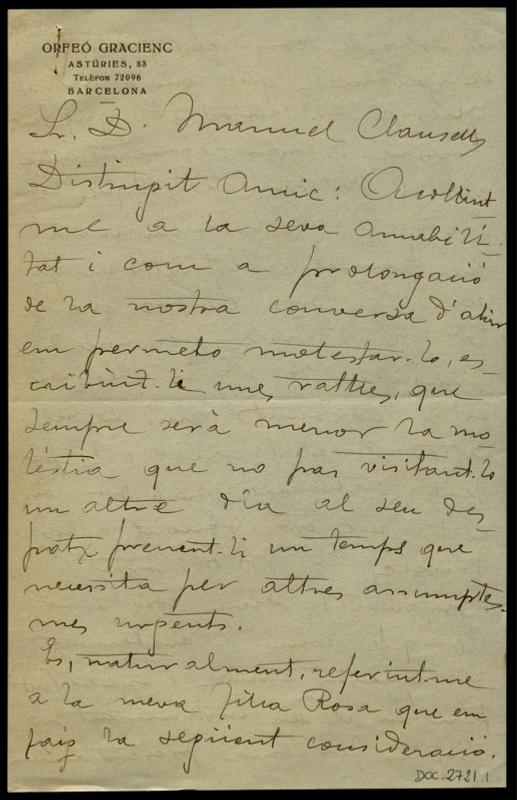 ORFEÓ GRACIENC
ASTÚRIES, 83
TELÈFON 72096
BARCELONA
Sr. D. Manuel Clausells
Distingit amic: Acollint-
me a la seva amabili-
tat i com a prolongació
de la nostra conversa d'ahir
em permeto molestar-lo, es-
cribint-li unes ratlles, que
sempre serà menor la mo-
lèstia que no pas visitant-lo
un altre dia al seu des-
patx prenent-li un temps que
necessita per altres assumptes
mes urgents.
Es, naturalment, referint-me
a la meva filla Rosa que em
faig la següent consideració.
DOC. 2721.1